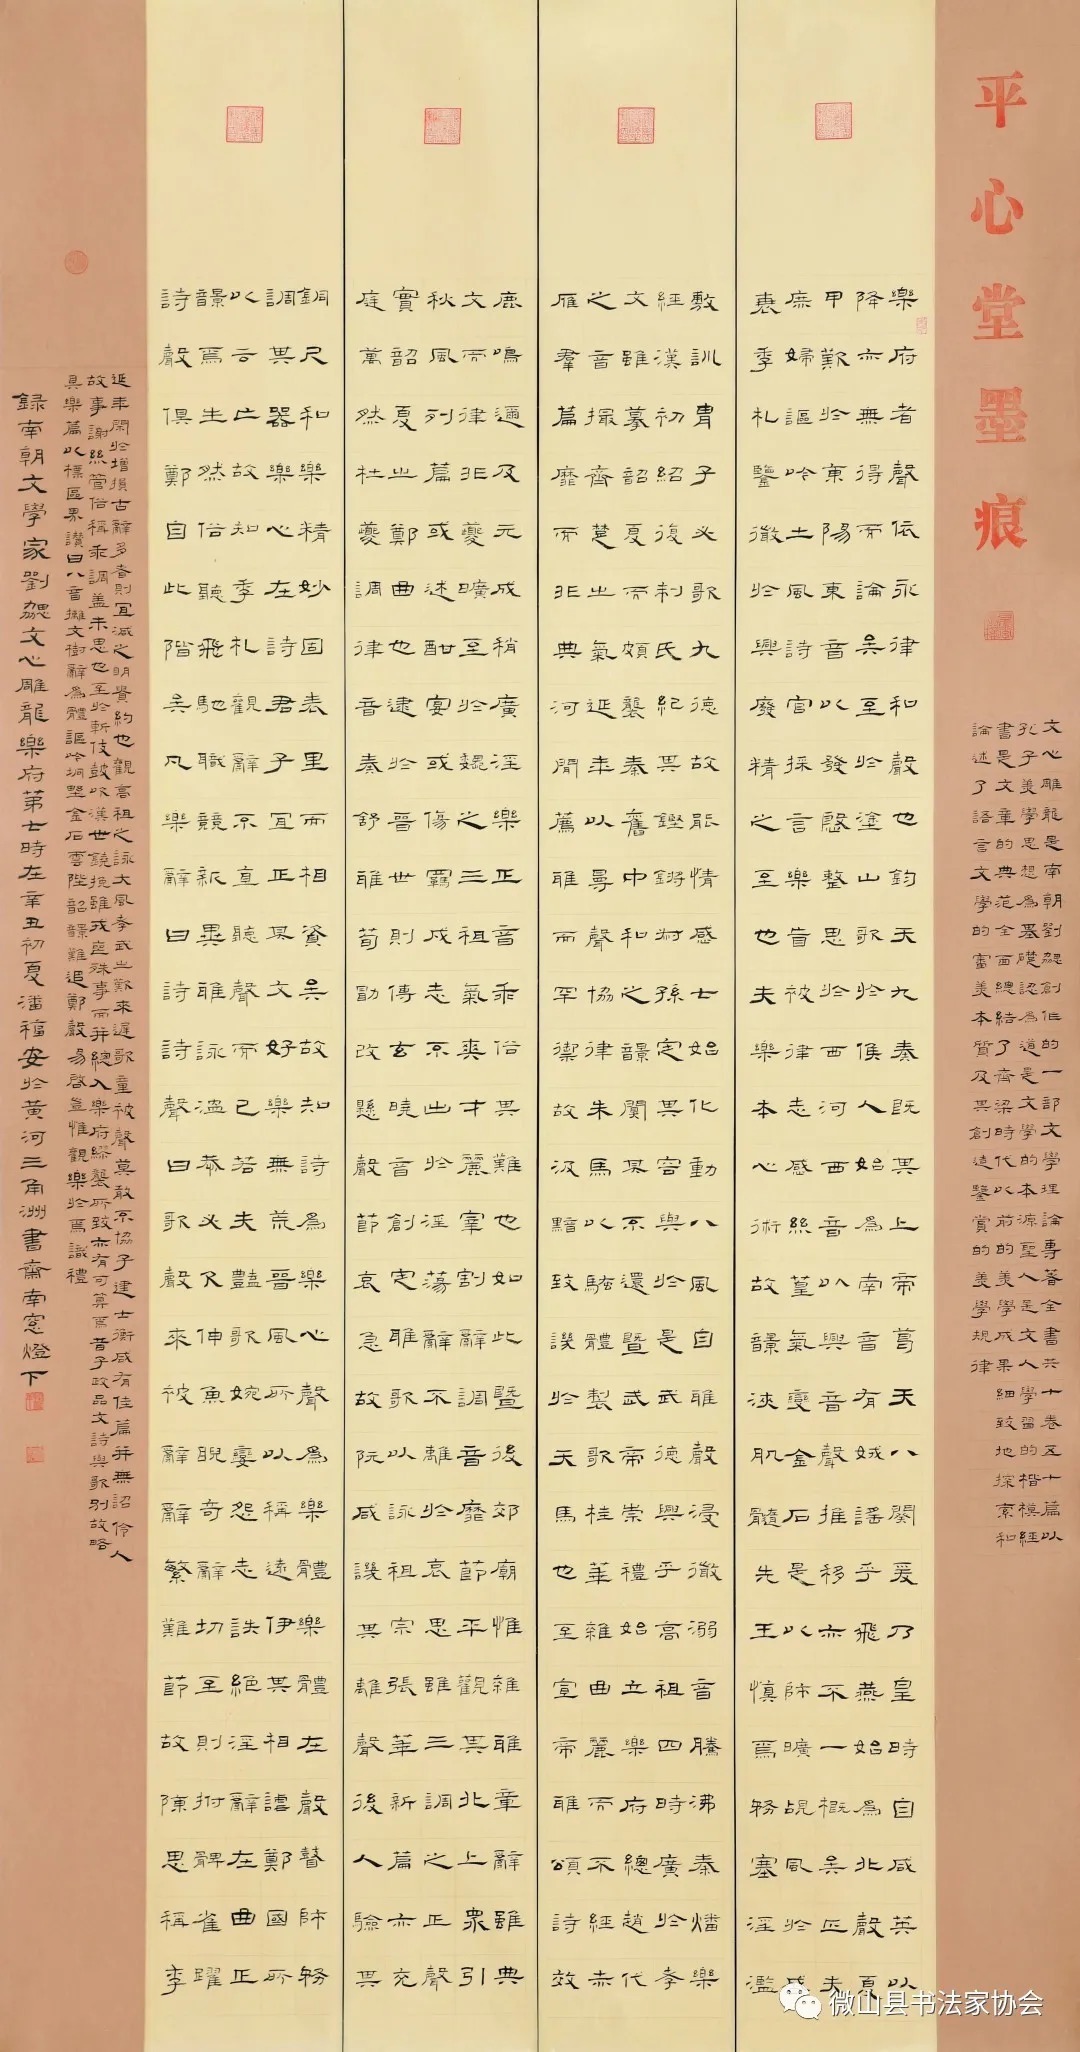 平心堂墨痕
文心雕龍是南朝劉勰創作的一部文學理論專著全書共十卷五十篇以
孔子美學思想為基礎認為道是文學的本源聖人是文人學習的楷模經
書是文章的典范全面總結了齊梁時代以前的美學成果細致地探索和
論述了語言文學的審美本質及其創造鑒賞的美學規律
樂府者聲依永律和聲也鈞天九奏既其上帝葛天八闋爰乃皇時自咸英以
降亦無得而論矣至於塗山歌於候人始為南音有娀謡乎飛燕始為北聲夏
甲歎於東陽東音以發殷整思於西河西音以興音聲推移亦不一概矣匹夫
庶婦謳吟土風詩官採言樂盲被律志感絲篁氣變金石是以師曠覘風於盛
衰季札鑒微於興廢精之至也夫樂本心術故韻浹肌髓先王慎焉務塞淫濫
敷訓胄子必歌九德故能情感七始化動八風自雅聲浸微溺音騰沸秦燔樂
經漢初紹復制氏紀其鏗鏘叔孫定其容與於是武德興乎高祖四時廣於孝
文雖摹韶夏而頗襲秦舊中和之韻闃其不還暨武帝崇禮始立樂府總趙代
之音撮齊楚之氣延年以曼聲協律朱馬以騷體製歌桂華雜曲麗而不經赤
雁羣篇靡而非典河閒薦雅而罕御故汲黯致譏於天馬也至宣帝雅頌詩效
鹿鳴邇及元成稍廣淫樂正音乖俗其難也如此暨後郊廟惟雜雅章辭雖典
文而律非夔曠至於魏之三祖氣爽才麗宰割辭調音靡節平觀其北上衆引
秋風列篇或述酣宴或傷羈戍志不出於淫蕩辭不離於哀思雖三調之正聲
實韶夏之鄭曲也逮於晉世則傅玄曉音創定雅歌以詠祖宗張華新篇亦充
庭萬然杜夔調律音奏舒雅荀勖改懸聲節哀急故阮咸譏其離聲後人驗其
銅尺和樂精妙固表里而相資矣故知詩為樂心聲為樂體樂體在聲瞽師務
調其器樂心在詩君子宜正其文好樂無荒晉風所以稱遠伊其相謔鄭國所
以云亡故知季札觀辭不直聽聲而已若夫豔歌婉孌怨志詄絕淫辭在曲正
韻焉生然俗聽飛馳職競新異雅詠溫恭必欠伸魚睨奇辭切至則拊髀雀躍
詩聲俱鄭自此階矣凡樂辭曰詩詩聲曰歌聲來被辭辭繁難節故陳思稱李
延年閑於增損古辭多者則宜減之明貴約也觀高祖之詠大風孝武之歎來遲歌童被聲莫敢不協子建士衡咸有佳篇并無詔伶人
故事謝絲管俗稱乖調蓋未思也至於斬伎鼓吹漢世鐃挽雖戎喪殊事而并總入樂府繆襲所致亦有可算焉昔子政品文詩與歌別故略
具樂篇以標區界讚曰八音摛文樹辭為體謳吟坰野金石雲陛韶韻難追鄭聲易啓豈惟觀樂於焉識禮
錄南朝文學家劉勰文心雕龍樂府第七時在辛丑初夏潘福安於黃河三角洲書齋南窓燈下
微山县书法家协会